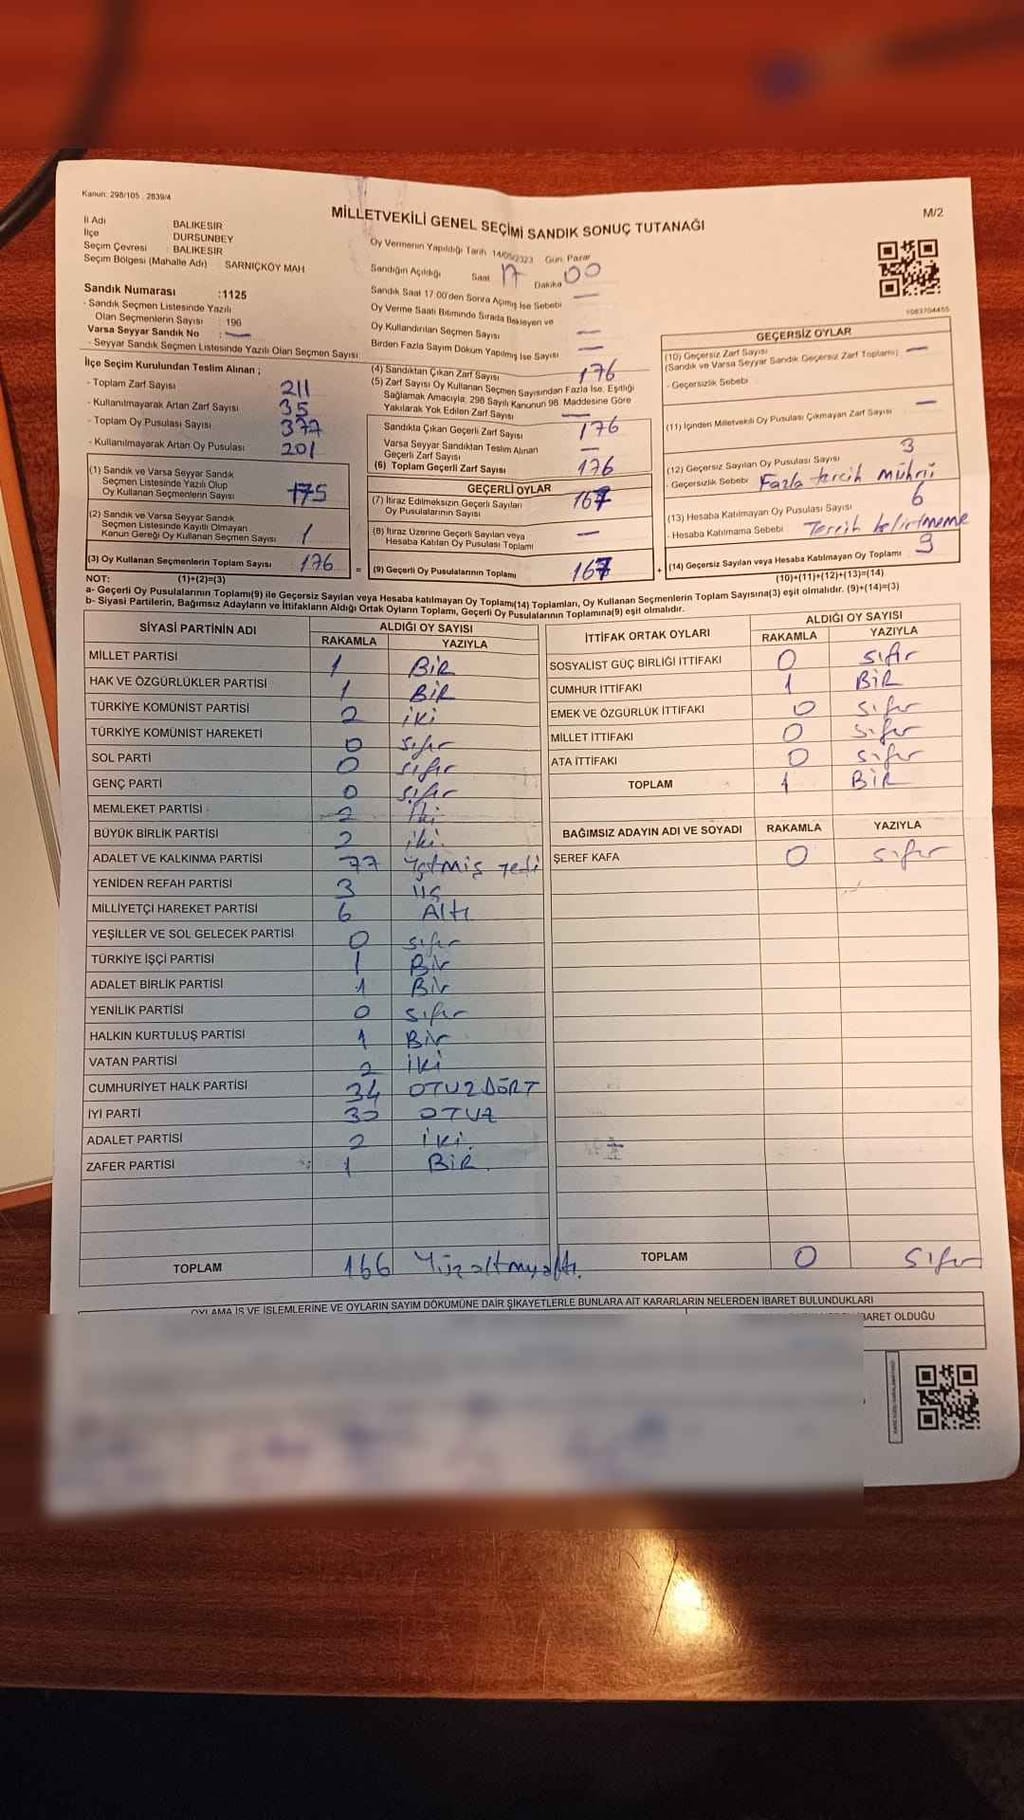 Kanun: 298/105 , 2839/4
MİLLETVEKİLİ GENEL SEÇİMİ SANDIK SONUÇ TUTANAĞI
M/2
İl Adı BALIKESİR
İlçe DURSUNBEY
Seçim Çevresi : BALIKESİR
Seçim Bölgesi (Mahalle Adı) : SARNIÇKÖY MAH
Sandık Numarası :1125
- Sandık Seçmen Listesinde Yazılı
Olan Seçmenlerin Sayısı : 196
Varsa Seyyar Sandık No : —
- Seyyar Sandık Seçmen Listesinde Yazılı Olan Seçmen Sayısı:
Oy Vermenin Yapıldığı Tarih 14/05/2023 Gün: Pazar
Sandığın Açıldığı Saat 17 Dakika 00
Sandık Saat 17:00'den Sonra Açılmış İse Sebebi —
Oy Verme Saati Bitiminde Sırada Bekleyen ve
Oy Kullandırılan Seçmen Sayısı —
Birden Fazla Sayım Döküm Yapılmış İse Sayısı —
1083704455
İlçe Seçim Kurulundan Teslim Alınan ;
- Toplam Zarf Sayısı 211
- Kullanılmayarak Artan Zarf Sayısı 35
- Toplam Oy Pusulası Sayısı 377
- Kullanılmayarak Artan Oy Pusulası 201
(1) Sandık ve Varsa Seyyar Sandık
Seçmen Listesinde Yazılı Olup
Oy Kullanan Seçmenlerin Sayısı 175
(2) Sandık ve Varsa Seyyar Sandık
Seçmen Listesinde Kayıtlı Olmayan
Kanun Gereği Oy Kullanan Seçmen Sayısı 1
(3) Oy Kullanan Seçmenlerin Toplam Sayısı 176
(4) Sandıktan Çıkan Zarf Sayısı 176
(5) Zarf Sayısı Oy Kullanan Seçmen Sayısından Fazla İse, Eşitliği
Sağlamak Amacıyla; 298 Sayılı Kanunun 98. Maddesine Göre
Yakılarak Yok Edilen Zarf Sayısı —
Sandıkta Çıkan Geçerli Zarf Sayısı 176
Varsa Seyyar Sandıktan Teslim Alınan
Geçerli Zarf Sayısı —
(6) Toplam Geçerli Zarf Sayısı 176
GEÇERLİ OYLAR
(7) İtiraz Edilmeksizin Geçerli Sayılan
Oy Pusulalarının Sayısı 167
(8) İtiraz Üzerine Geçerli Sayılan veya
Hesaba Katılan Oy Pusulası Toplamı —
= (9) Geçerli Oy Pusulalarının Toplamı 167
GEÇERSİZ OYLAR
(10) Geçersiz Zarf Sayısı
(Sandık ve Varsa Seyyar Sandık Geçersiz Zarf Toplamı) —
- Geçersizlik Sebebi
(11) İçinden Milletvekili Oy Pusulası Çıkmayan Zarf Sayısı —
(12) Geçersiz Sayılan Oy Pusulası Sayısı 3
- Geçersizlik Sebebi Fazla tercih mührü
(13) Hesaba Katılmayan Oy Pusulası Sayısı 6
- Hesaba Katılmama Sebebi Tercih belirtmeme
+ (14) Geçersiz Sayılan veya Hesaba Katılmayan Oy Toplamı 9
NOT: (1)+(2)=(3) (10)+(11)+(12)+(13)=(14)
a- Geçerli Oy Pusulalarının Toplamı(9) ile Geçersiz Sayılan veya Hesaba katılmayan Oy Toplamı(14) Toplamları, Oy Kullanan Seçmenlerin Toplam Sayısına(3) eşit olmalıdır. (9)+(14)=(3)
b- Siyasi Partilerin, Bağımsız Adayların ve İttifakların Aldığı Ortak Oyların Toplamı, Geçerli Oy Pusulalarının Toplamına(9) eşit olmalıdır.
SİYASİ PARTİNİN ADI ALDIĞI OY SAYISI
RAKAMLA YAZIYLA
MİLLET PARTİSİ 1 BİR
HAK VE ÖZGÜRLÜKLER PARTİSİ 1 BİR
TÜRKİYE KOMÜNİST PARTİSİ 2 iki
TÜRKİYE KOMÜNİST HAREKETİ 0 sıfır
SOL PARTİ 0 sıfır
GENÇ PARTİ 0 sıfır
MEMLEKET PARTİSİ 2 iki
BÜYÜK BİRLİK PARTİSİ 2 iki.
ADALET VE KALKINMA PARTİSİ 77 yetmiş yedi
YENİDEN REFAH PARTİSİ 3 üç
MİLLİYETÇİ HAREKET PARTİSİ 6 Altı
YEŞİLLER VE SOL GELECEK PARTİSİ 0 sıfır
TÜRKİYE İŞÇİ PARTİSİ 1 Bir
ADALET BİRLİK PARTİSİ 1 Bir
YENİLİK PARTİSİ 0 sıfır
HALKIN KURTULUŞ PARTİSİ 1 Bir
VATAN PARTİSİ 2 iki
CUMHURİYET HALK PARTİSİ 34 OTUZDÖRT
İYİ PARTİ 30 OTUZ
ADALET PARTİSİ 2 iki.
ZAFER PARTİSİ 1 BİR.
TOPLAM 166 Yüzaltmışaltı.
İTTİFAK ORTAK OYLARI ALDIĞI OY SAYISI
RAKAMLA YAZIYLA
SOSYALİST GÜÇ BİRLİĞİ İTTİFAKI 0 sıfır
CUMHUR İTTİFAKI 1 BİR
EMEK VE ÖZGÜRLÜK İTTİFAKI 0 sıfır
MİLLET İTTİFAKI 0 sıfır
ATA İTTİFAKI 0 sıfır
TOPLAM 1 BİR
BAĞIMSIZ ADAYIN ADI VE SOYADI RAKAMLA YAZIYLA
ŞEREF KAFA 0 sıfır
TOPLAM 0 sıfır
OYLAMA İŞ VE İŞLEMLERİNE VE OYLARIN SAYIM DÖKÜMÜNE DAİR ŞİKAYETLERLE BUNLARA AİT KARARLARIN NELERDEN İBARET BULUNDUKLARI
İBARET OLDUĞU